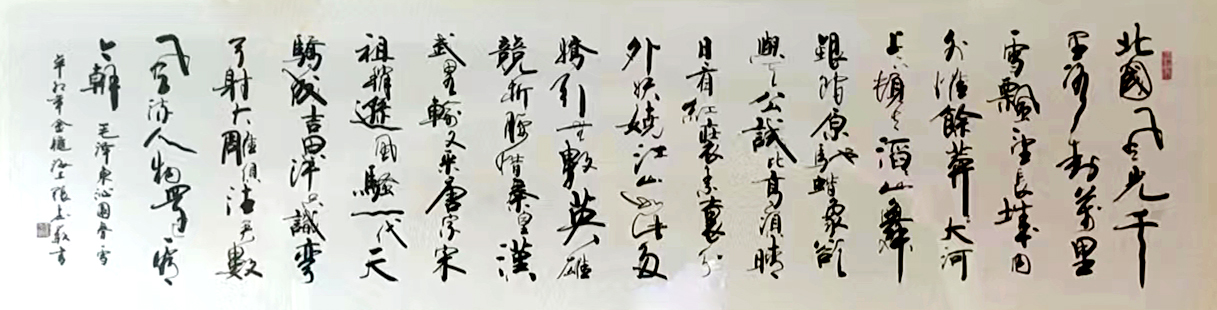 北國風光千
里冰封萬里
雪飄望長城内
外惟餘莽大河
上下頓失滔山舞
銀蛇原馳蠟象欲
與天公試比高須晴
日看紅裝素裹分
外妖嬈江山如此多
嬌引無數英雄
競折腰惜秦皇漢
武略輸文采唐宗宋
祖稍遜風騷一代天
驕成吉思汗只識彎
弓射大雕俱往矣數
風流人物還看
今朝
毛澤東沁園春雪
辛卯年金隨 張書